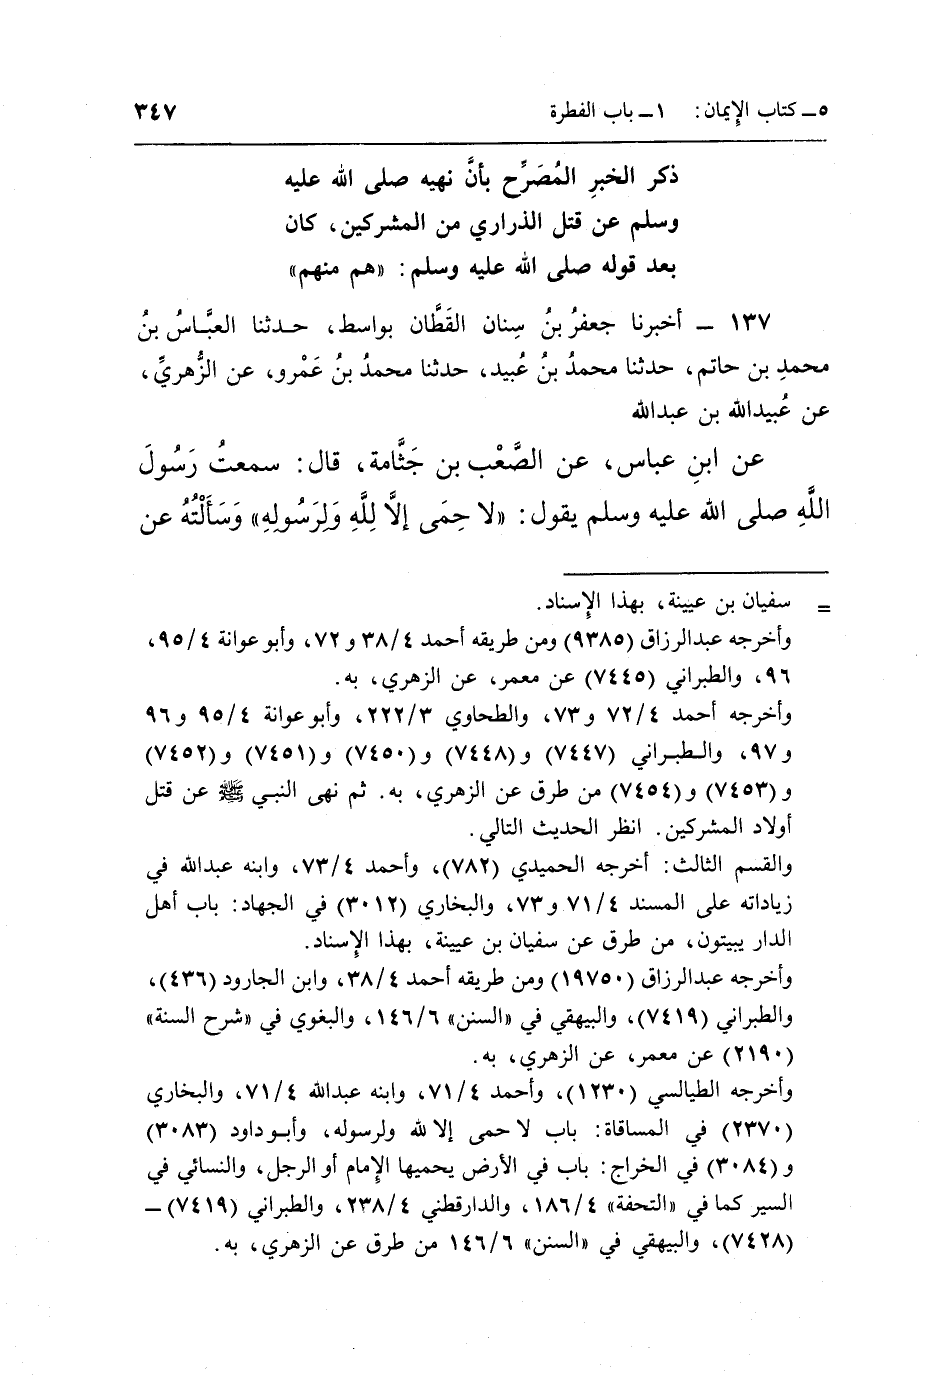 ٥ ــ كتاب الإيمان: ١ ــ باب الفطرة ٣٤٧
ذكر الخبرِ المُصَرِّح بأنَّ نهيه صلى الله عليه
وسلم عن قتل الذراري من المشركين، كان
بعد قوله صلى الله عليه وسلم: «هم منهم»
١٣٧ ــ أخبرنا جعفرُ بنُ سِنان القَطَّان بواسط، حدثنا العبَّاسُ بنُ
محمدِ بن حاتم، حدثنا محمدُ بنُ عُبيد، حدثنا محمدُ بنُ عَمْرو، عن الزُّهريِّ،
عن عُبيدالله بن عبدالله
عن ابنِ عباس، عن الصَّعْب بن جَثَّامة، قال: سمعتُ رَسُولَ
اللَّهِ صلى الله عليه وسلم يقول: «لا حِمَى إلَّا لِلَّهِ وَلِرَسُولِهِ» وَسَأَلْتُهُ عن
= سفيان بن عيينة، بهذا الإسناد.
وأخرجه عبدالرزاق (٩٣٨٥) ومن طريقه أحمد ٣٨/٤ و٧٢، وأبو عوانة ٩٥/٤،
٩٦، والطبراني (٧٤٤٥) عن معمر، عن الزهري، به.
وأخرجه أحمد ٧٢/٤ و٧٣، والطحاوي ٢٢٢/٣، وأبو عوانة ٩٥/٤ و٩٦
و٩٧، والطبراني (٧٤٤٧) و(٧٤٤٨) و(٧٤٥٠) و(٧٤٥١) و(٧٤٥٢)
و(٧٤٥٣) و(٧٤٥٤) من طرق عن الزهري، به. ثم نهى النبي ﷺ عن قتل
أولاد المشركين. انظر الحديث التالي.
والقسم الثالث: أخرجه الحميدي (٧٨٢)، وأحمد ٧٣/٤، وابنه عبدالله في
زياداته على المسند ٧١/٤ و٧٣، والبخاري (٣٠١٢) في الجهاد: باب أهل
الدار يبيتون، من طرق عن سفيان بن عيينة، بهذا الإسناد.
وأخرجه عبدالرزاق (١٩٧٥٠) ومن طريقه أحمد ٣٨/٤، وابن الجارود (٤٣٦)،
والطبراني (٧٤١٩)، والبيهقي في «السنن» ١٤٦/٦، والبغوي في «شرح السنة»
(٢١٩٠) عن معمر، عن الزهري، به.
وأخرجه الطيالسي (١٢٣٠)، وأحمد ٧١/٤، وابنه عبدالله ٧١/٤، والبخاري
(٢٣٧٠) في المساقاة: باب لا حمى إلا لله ولرسوله، وأبو داود (٣٠٨٣)
و(٣٠٨٤) في الخراج: باب في الأرض يحميها الإمام أو الرجل، والنسائي في
السير كما في «التحفة» ١٨٦/٤، والدارقطني ٢٣٨/٤، والطبراني (٧٤١٩) ــ
(٧٤٢٨)، والبيهقي في «السنن» ١٤٦/٦ من طرق عن الزهري، به.